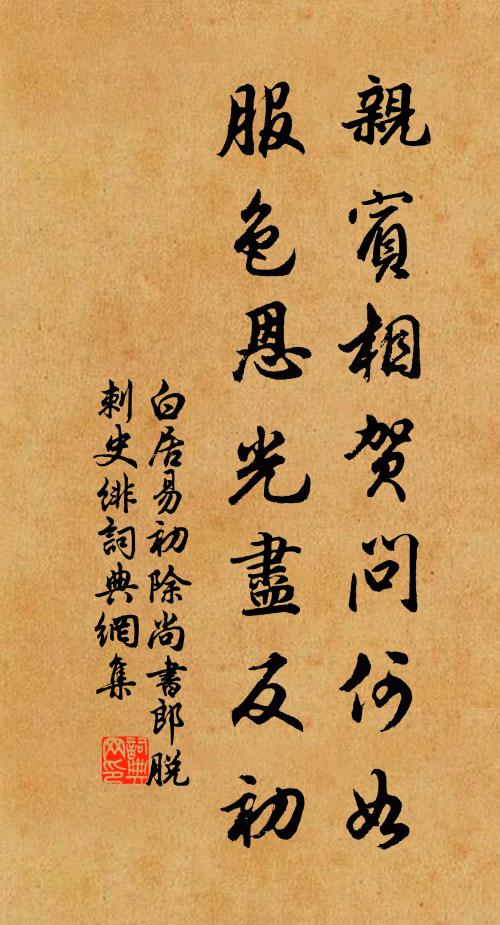 親賓相賀問何如
服色恩光盡反初
白居易初除尚書郎脫
刺史緋詞典網集
詞典
网印